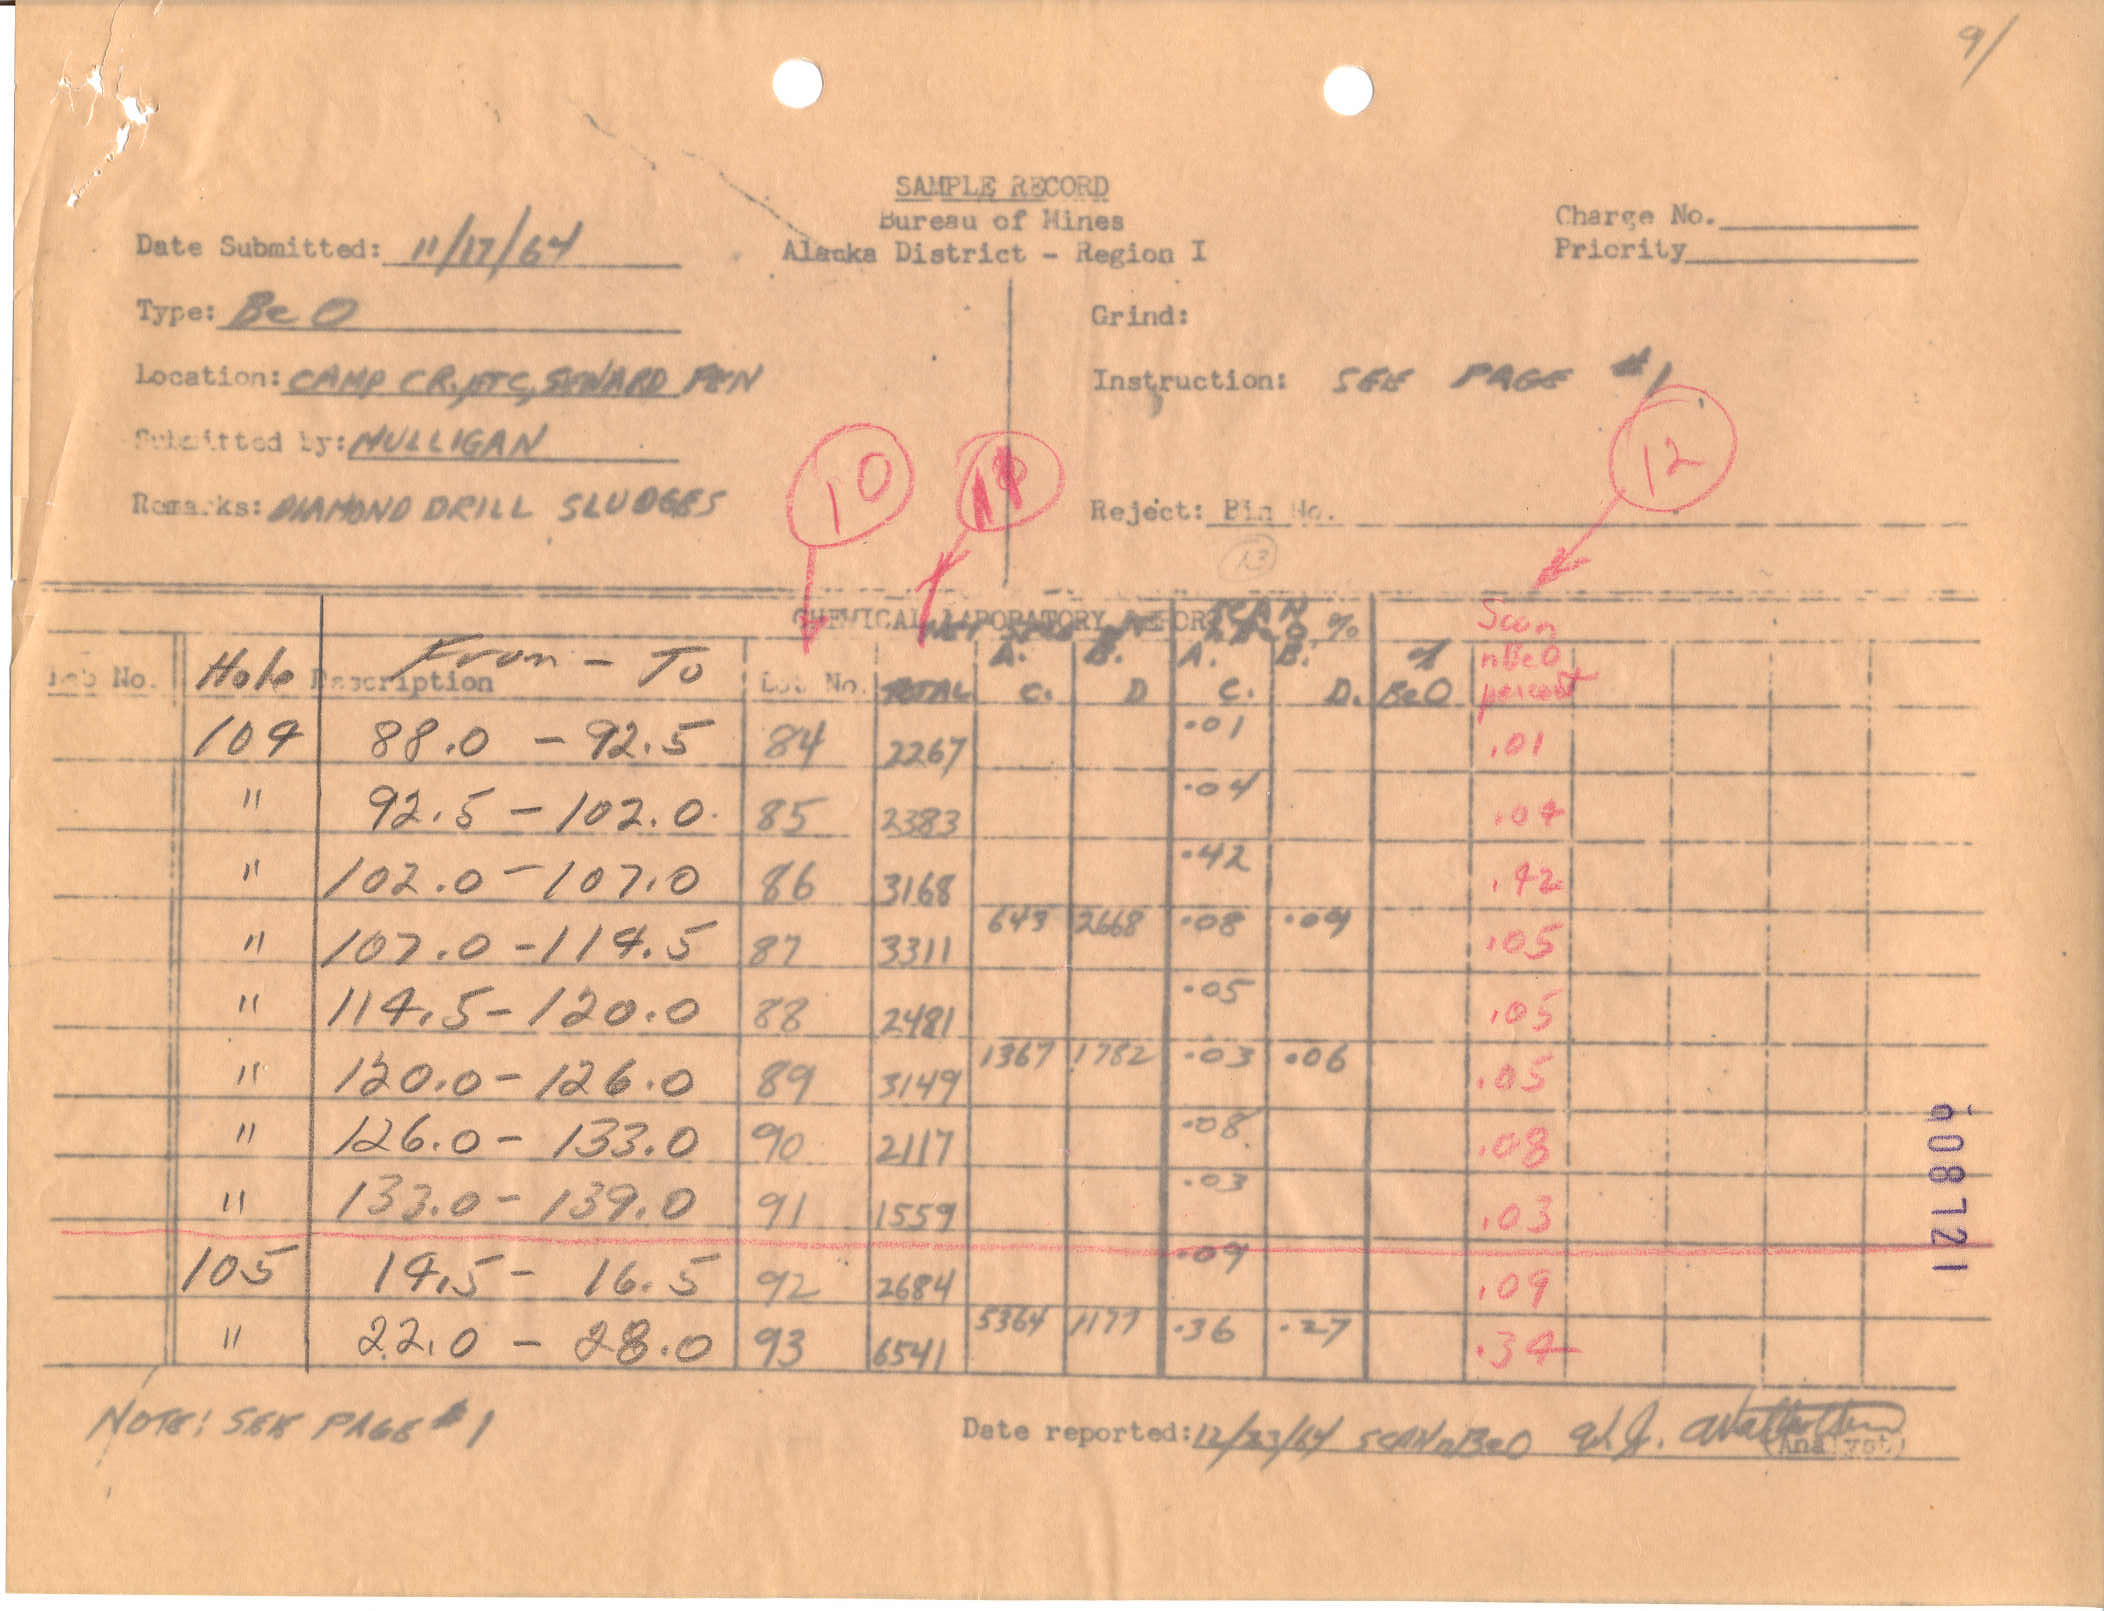 9/
SAMPLE RECORD
Bureau of Mines
Alaska District - Region I
Charge No.
Priority
Date Submitted: 11/17/64
Type: BeO
Grind:
Location: CAMP CR, ETC, SEWARD PEN
Instruction: SEE PAGE #1
Submitted by: MULLIGAN
10 11 12
Remarks: DIAMOND DRILL SLUDGES
Reject: Bin No.
13
CHEMICAL LABORATORY REPORT SCAN %
Scan
Lab No. Hole Description From - To Lot No. TOTAL A. C. B. D A. C. B. D. % BeO nBeO percent
104 88.0 - 92.5 84 2267 .01 .01
" 92.5 - 102.0 85 2383 .04 .04
" 102.0 - 107.0 86 3168 .42 .42
" 107.0 - 114.5 87 3311 643 2668 .08 .04 .05
" 114.5 - 120.0 88 2481 .05 .05
" 120.0 - 126.0 89 3149 1367 1782 .03 .06 .05
" 126.0 - 133.0 90 2117 .08 .08
" 133.0 - 139.0 91 1559 .03 .03
105 14.5 - 16.5 92 2684 .09 .09
" 22.0 - 28.0 93 6541 5364 1177 .36 .27 .34
NOTE: SEE PAGE #1
Date reported: 12/23/64 SCAN nBeO
(Analyst)